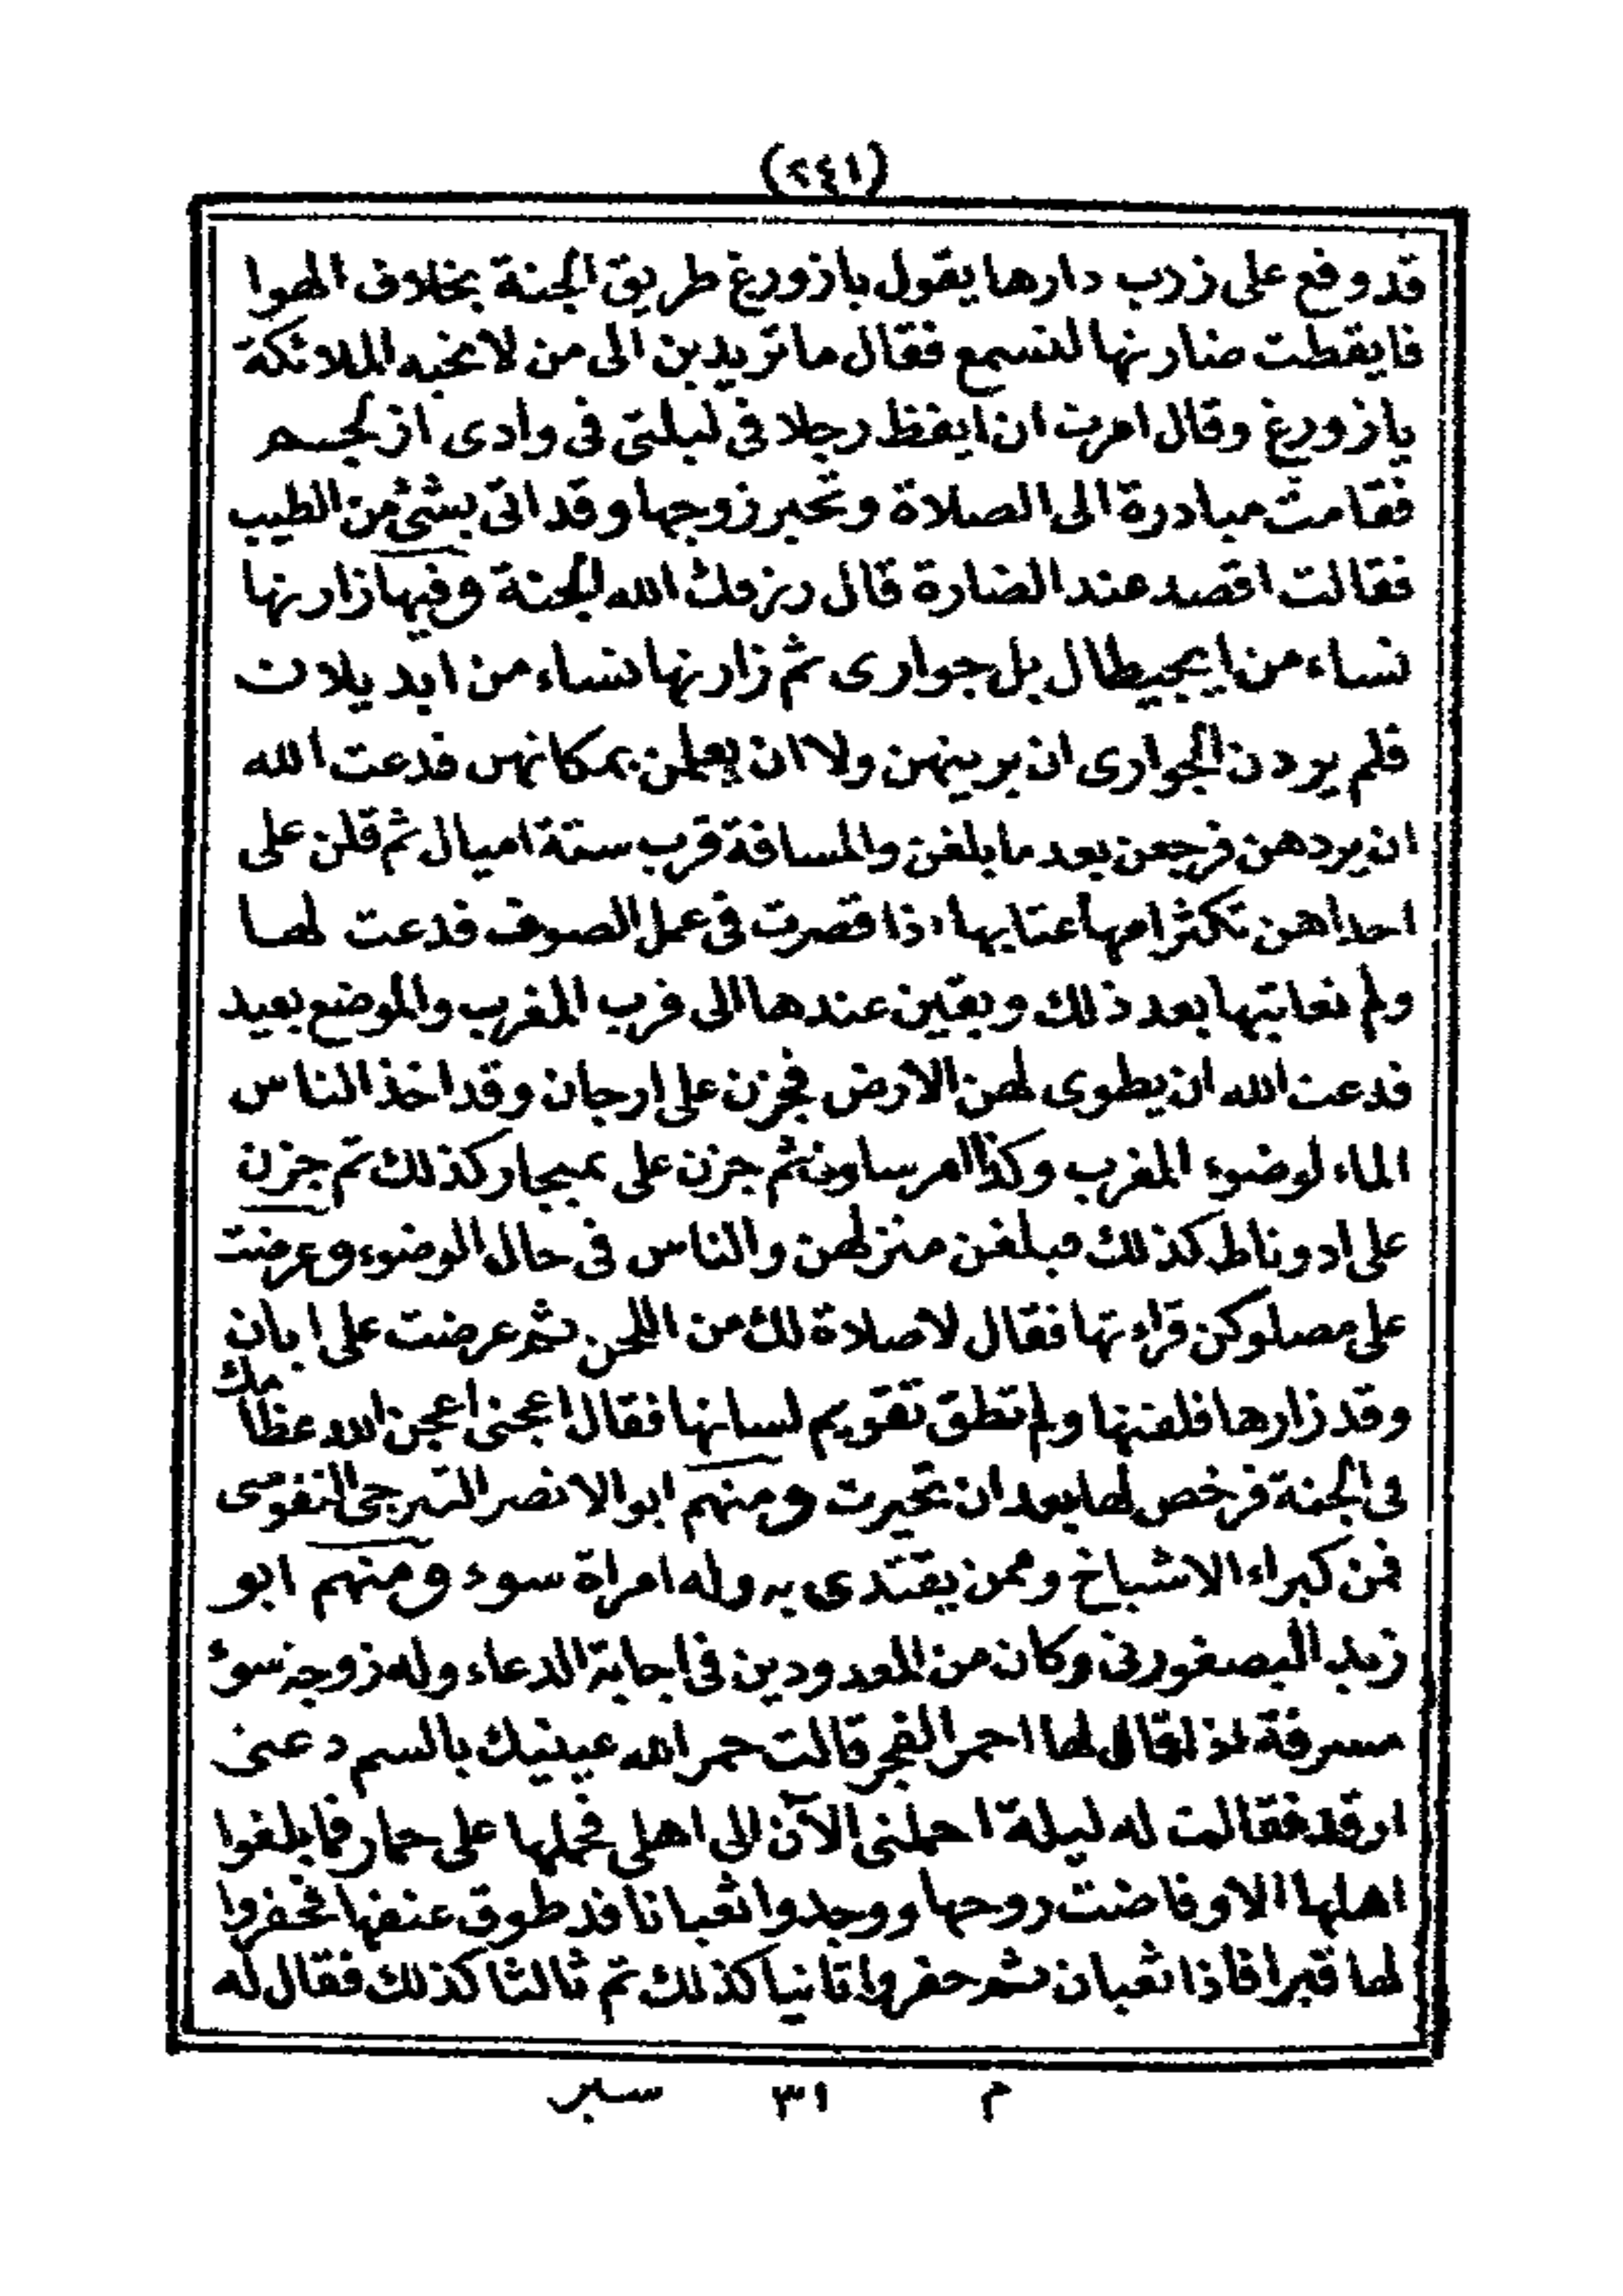 (٢٤١)
قد وقع على زرب دارها يقول يازورغ طريق الجنة بخلاف الهوا
فايقظت ضارتها لتسمع فقال ما تريدين الى من لا تحبه الملائكة
يازورغ وقال امرت ان ايقظ رجلا فى ليلتى فى وادى ازلجم
فقامت مبادرة الى الصلاة وتحبر زوجها وقد اتى بشئ من الطيب
فقالت اقصد عند الضارة قال رزقك الله الجنة وفيها زارتها
نساء من ايجيطال بل جوارى ثم زارتها نساء من ابديلات
فلم يردن الجوارى ان يرينهن ولا ان يعلمن بمكانهن فدعت الله
ان يردهن فرجعن بعد ما بلغن والمسافة قرب ستة اميال ثم قلن على
احداهن تكثر امها عتابها اذا قصرت فى عمل الصوف فدعت لها
ولم تعاتبها بعد ذلك وبقين عندها الى قرب المغرب والموضع بعيد
فدعت الله ان يطوى لهن الارض فجزن على ارجان وقد اخذ الناس
الماء لوضوء المغرب وكذا المرساون ثم جزن على تميجار كذلك ثم جزن
على ادوناط كذلك فبلغن منزلهن والناس فى حال الوضوء وعرضت
على مصلوكن قراءتها فقال لا صلاة لك من اللحن ثم عرضت على ابان
وقد زارها فلقنها ولم تطق تقويم لسانها فقال اعجنى اعجن الله عظامك
فى الجنة فرخص لها بعد ان تحيرت ومنهم ابو الانصر التبرجى النفوسى
فمن كبراء الاشياخ وممن يقتدى به وله امراة سوء ومنهم ابو
زيد البصغورنى وكان من المعدودين فى اجابة الدعاء وله زوجة سوء
مسرفة اذا قال لها احمر الفجر قالت حمر الله عينيك بالسم دعنى
ارقد فقالت له ليلة احملنى الآن الى اهلى فحملها على حمار فما بلغوا
اهلها الا وفاضت روحها ووجدوا ثعبانا قد طوق عنقها فحفروا
لها قبرا فاذا ثعبان ثم حفروا ثانيا كذلك ثم ثالثا كذلك فقال له
م ٣١ سير